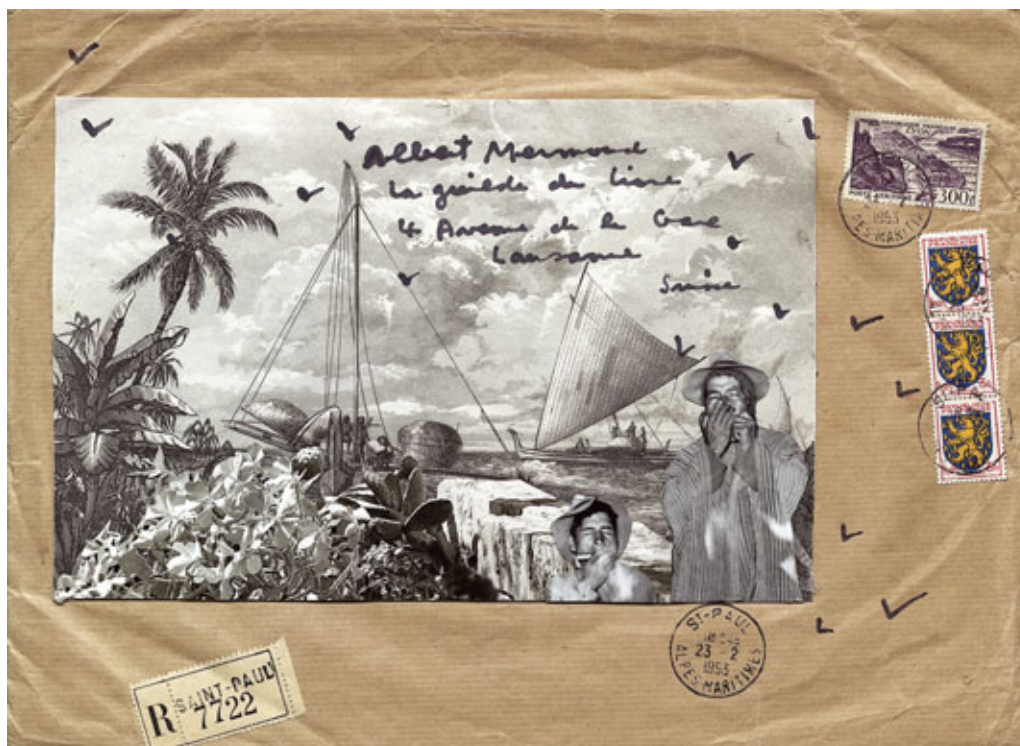 Albert Mermoud
La guilde du Livre
4 Avenue de la Gare
Lausanne
Suisse
300f
1953
ALPES-MARITIMES
ST-PAUL
23 - 2
1953
ALPES-MARITIMES
SAINT-PAUL
R 7722